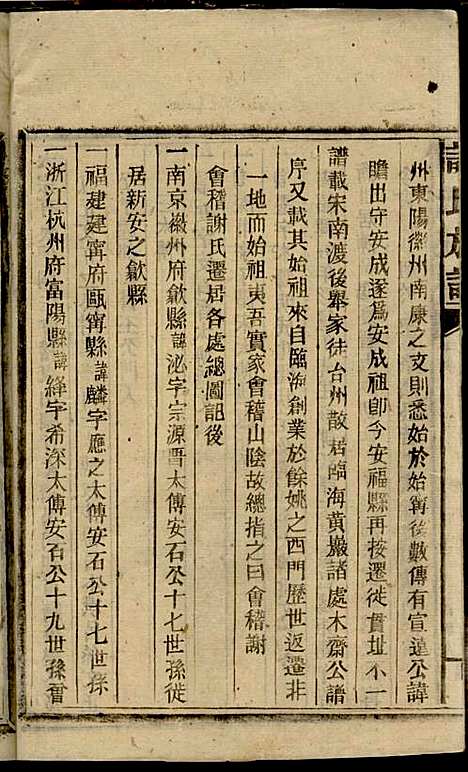 謝氏族譜
州東陽徽州南康之支則悉始於始甯後數傳有宣遠公諱
瞻出守安成遂爲安成祖卽今安福縣再按遷徙貫址不一
譜載宋南渡後舉家徙台州散居臨海黃巖諸處木齋公譜
序又載其始祖來自臨海創業於餘姚之西門歷世返遷非
一地而始祖夷吾實家會稽山陰故總指之曰會稽謝
會稽謝氏遷居各處總圖詔後
一南京徽州府歙縣諱泌字宗源晋太傅安石公十七世孫徙
居新安之歙縣
一福建建甯府甌甯縣諱麟字應之太傅安石公十七世孫
一浙江杭州府富陽縣諱絳字希深太傅安石公十九世孫會